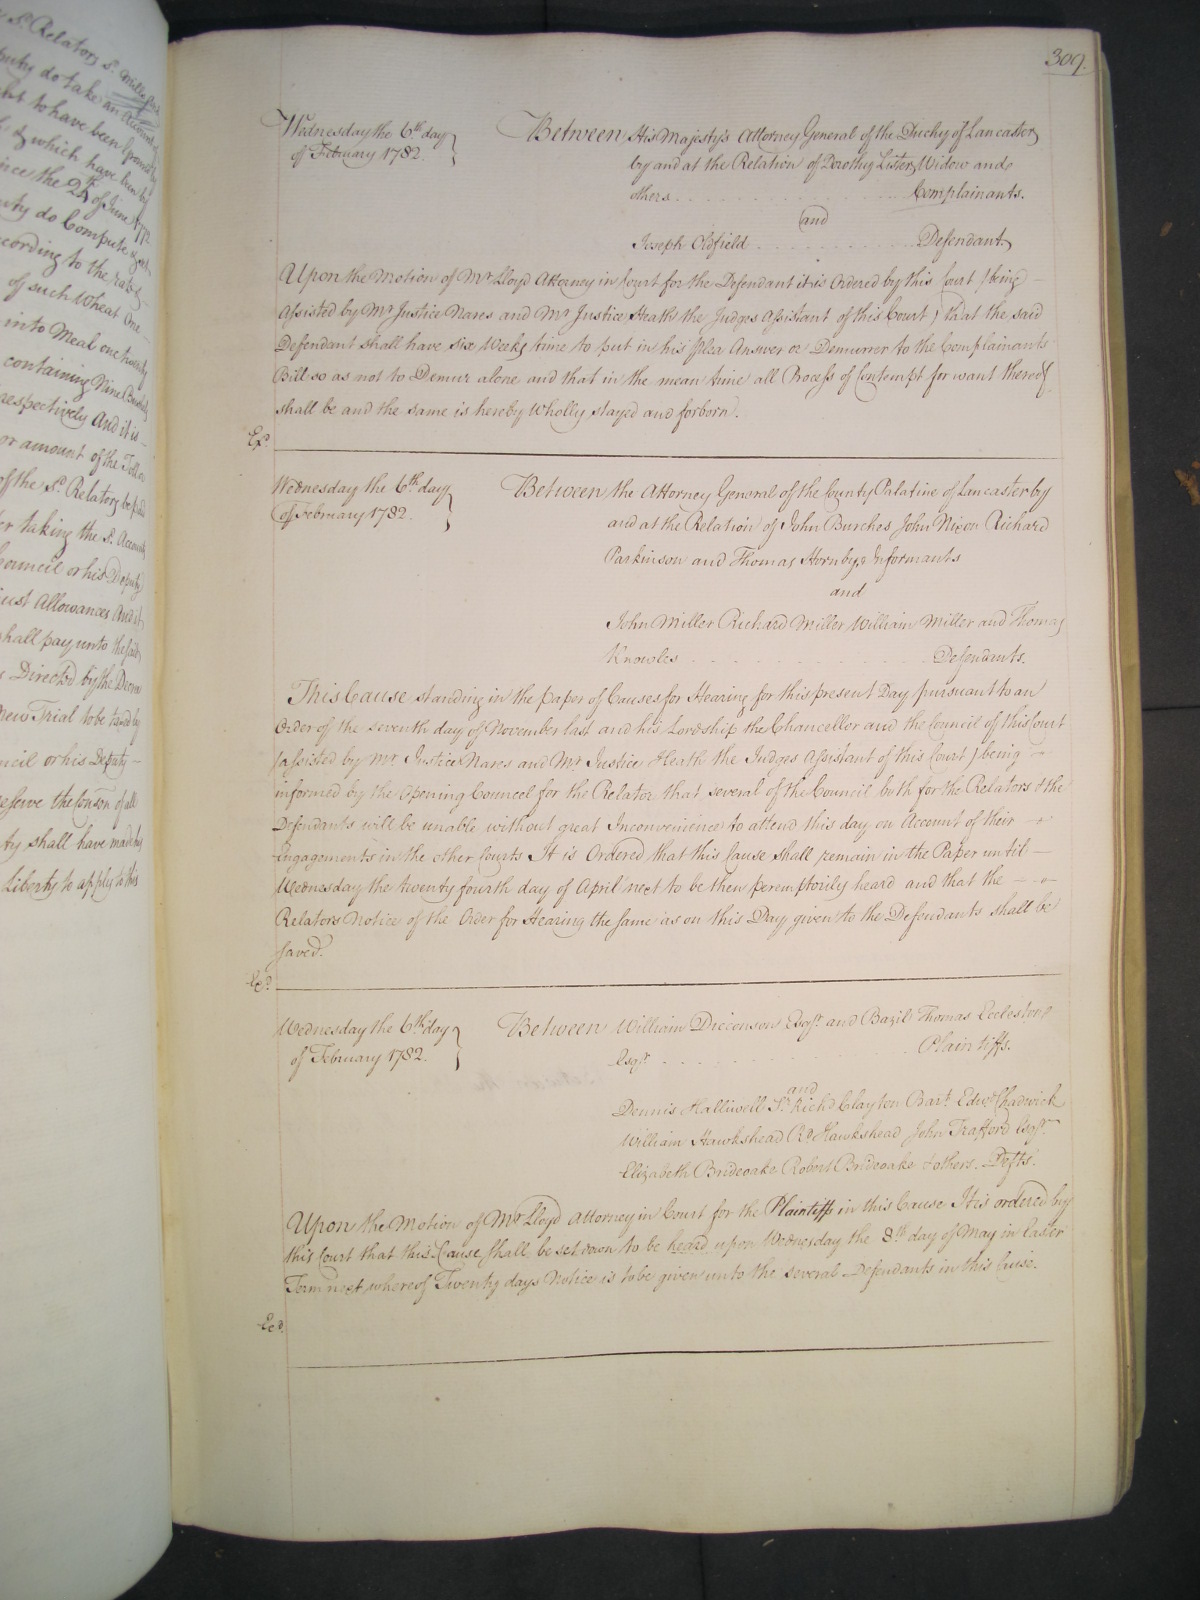 309.
Wednesday the 6th day
of February 1782.
Between His Majestys Attorney General of the Duchy of Lancaster
by and at the Relation of Dorothy Lister Widow and
others . . . . Complainants.
and
Joseph Oldfield . . . . Defendant
Upon the Motion of Mr Lloyd Attorney in Court for the Defendant it is Ordered by this Court (being
Assisted by Mr Justice Nares and Mr Justice Heath the Judges Assistant of this Court) that the said
Defendant shall have six Weeks time to put in his Plea Answer or Demurrer to the Complainants
Bill so as not to Demur alone and that in the mean time all Process of Contempt for want thereof
shall be and the same is hereby Wholly stayed and forborn.
Exd.
Wednesday the 6th day
of February 1782.
Between the Attorney General of the County Palatine of Lancaster by
and at the Relation of John Burches John Nixon Richard
Parkinson and Thomas Hornby Informants
and
John Miller Richard Miller William Miller and Thomas
Knowles . . . . Defendants.
This Cause standing in the Paper of Causes for Hearing for this present Day pursuant to an
Order of the seventh day of November last and his Lordship the Chancellor and the Council of this Court
(assisted by Mr. Justice Nares and Mr Justice Heath the Judges Assistant of this Court) being
informed by the Opening Councel for the Relator that several of the Council both for the Relators & the
Defendants will be unable without great Inconvenience to attend this day on Account of their
Engagements in the other Courts It is Ordered that this Cause shall remain in the Paper until
Wednesday the twenty fourth day of April next to be then peremptorily heard and that the
Relators Notice of the Order for Hearing the same as on this Day given to the Defendants shall be
saved.
Exd.
Wednesday the 6th day
of February 1782.
Between William Dicconson Esqr. and Bazil Thomas Eccleston
Esqr. . . . . Plaintiffs.
and
Dennis Halliwell Sr. Richd Clayton Bart. Edwd Chadwick
William Hawkshead Rd Hawkshead John Trafford Esqr.
Elizabeth Brideoake Robert Brideoake & others. Defts.
Upon the Motion of Mr Lloyd Attorney in Court for the Plaintiffs in this Cause It is ordered by
this Court that this Cause shall be set down to be heard upon Wednesday the 8th day of May in Easter
Term next whereof Twenty days Notice is to be given unto the several Defendants in this Cause.
Exd.